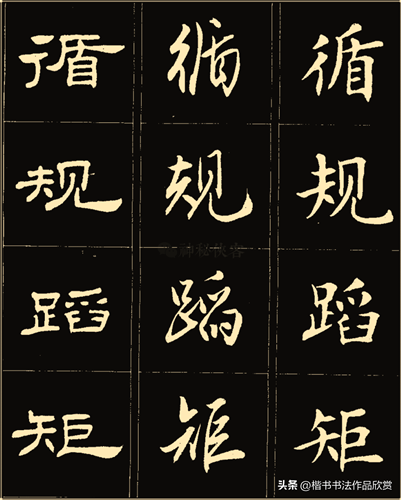 循 循 循
规 规 规
蹈 蹈 蹈
矩 矩 矩
头条 @楷书书法作品欣赏